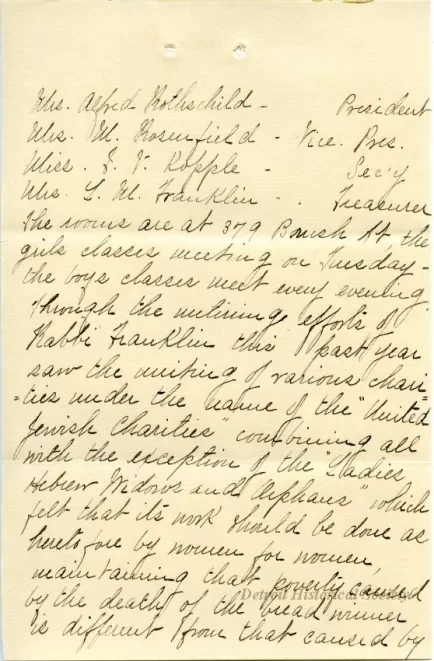 Mrs. Alfred Rothschild - President
Mrs. M. Rosenfield - Vice. Pres.
Miss. I. V. Kopple - Sec'y
Mrs. L. M. Franklin - . Treasurer
The rooms are at 379 Brush St, the
girls classes meeting on Tuesday -
the boys classes meet every evening.
Through the untiring efforts of
Rabbi Franklin this past year
saw the uniting of various chari
=ties under the name of the "United
Jewish Charities" combining all
with the exception of the "Ladies
Hebrew Widows and Orphans" which
felt that its work should be done as
heretofore by women for women,
maintaining that poverty caused
by the death of the bread winner
is different from that caused by
Detroit Historical Society